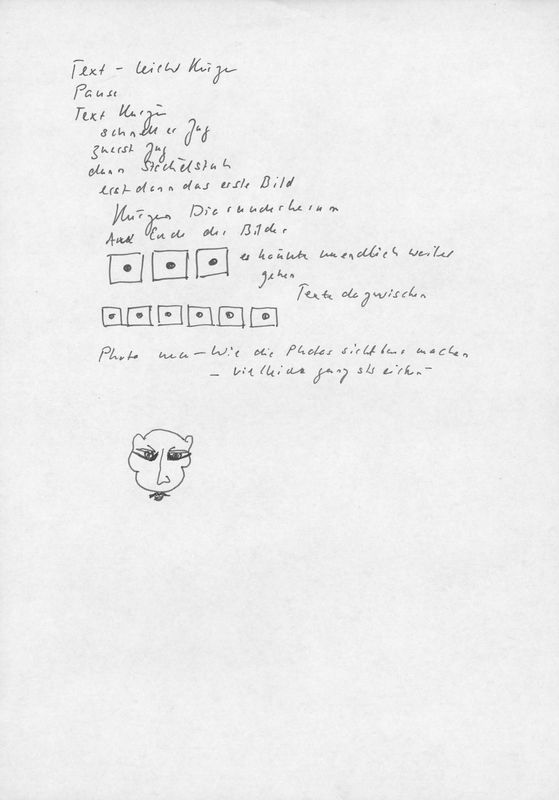 Text – leicht Kürzen
Pause
Text Kürzen
schneller Zug
zuerst Zug
dann
erst dann das erste Bild
Kürzen
Ende der Bilder
es könnte unendlich weiter
gehen
Texte dazwischen
Photo – Wie die Photos sichtbar machen
– vielleicht ganz